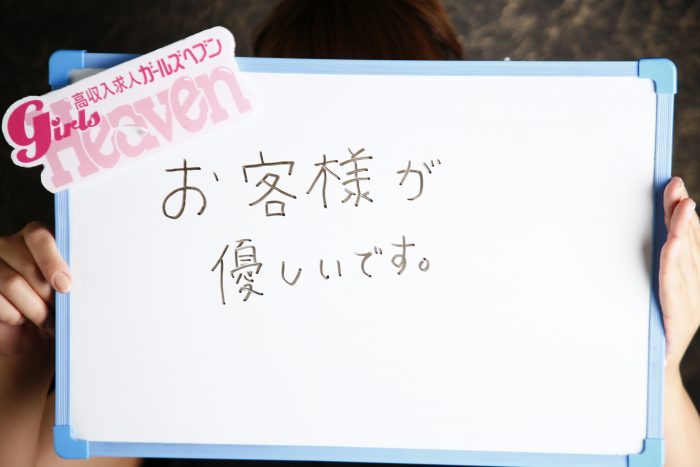 高収入求人ガールズヘブン
Girls Heaven
お客様が
優しいです。